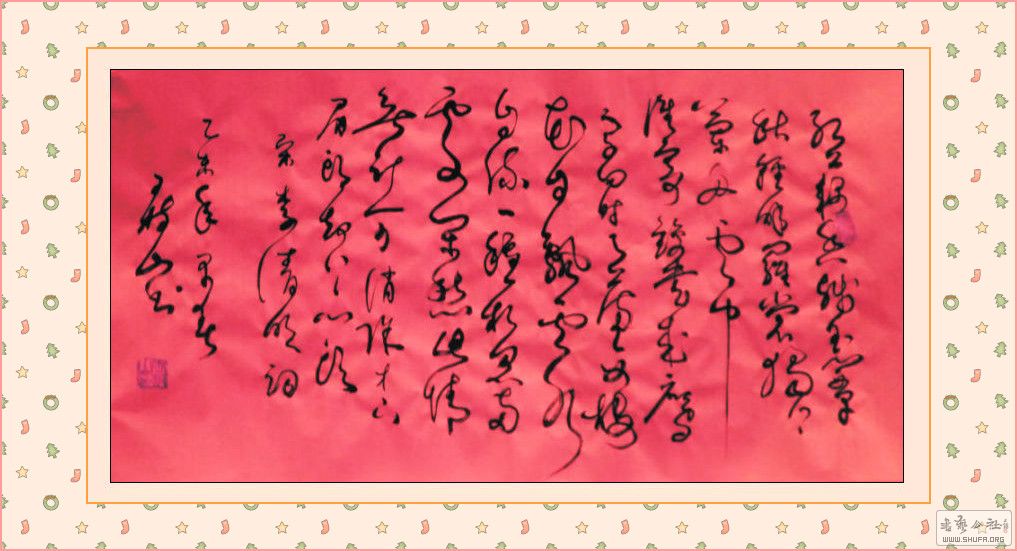 红藕香残玉簟
秋轻解罗裳独上
兰舟云中
谁寄锦书来雁
字回时月满西楼
花自飘零水
自流一种相思两
处闲愁此情
无计可消除才下
眉头却上心头
宋李清照词
乙未年早春
山书
书艺公社
WWW.SHUFA.ORG